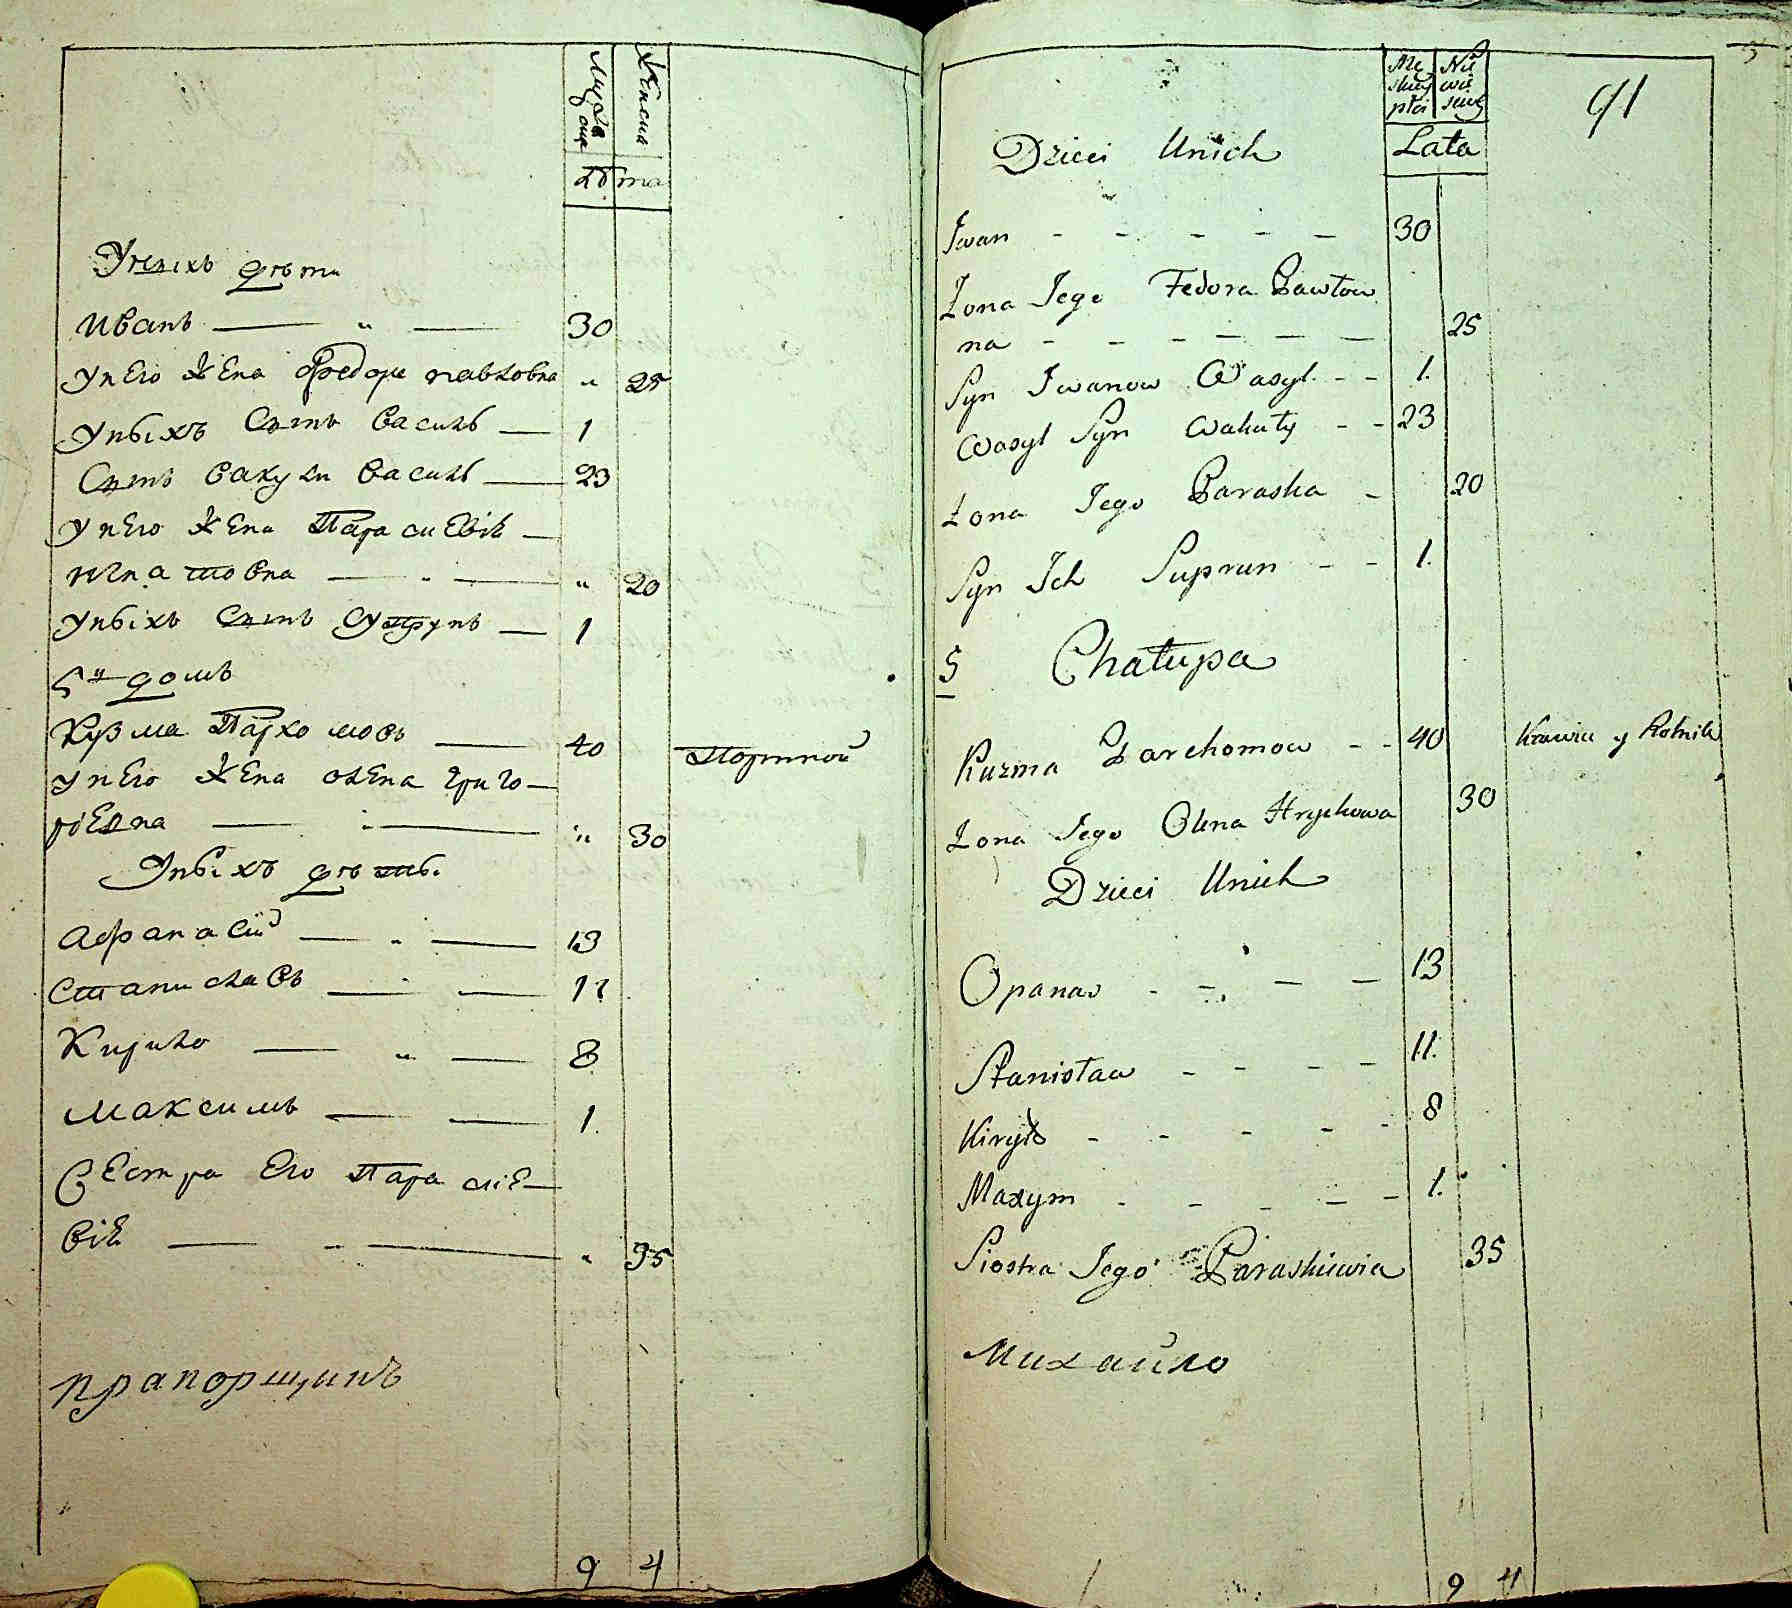 Мужеска
Женска
лѣта
Унихъ дѣти
Иванъ — " — 30
унего жена Федора павловна " 25
унихъ Сынъ Василь — 1
Сынъ Вакулы Василь — 23
унего жена Парасцевія —
Игнатовна — " — " 20
унихъ Сынъ Супрунъ — 1
5й домъ
Кузма Пархомовъ — 40 Портной
унего жена олена Григо—
ріевна — " — " 30
Унихъ дѣти.
Афанасій — " — 13
Станиславъ — " — 11
Кирило — " — 8
Максимъ — — 1.
Сестра его Парасціе—
вія — " — " 35
прапорщикъ
9 4
91
Męskiey płci
Niewieściej
Lata
Dzieci Unich
Iwan - - - - - 30
Zona Jego Fedora Pawłow
na - - - - - - 25
Syn Iwanow Wasyl - - 1.
Wasyl Syn Wakuły - - 23
Zona Jego Paraska - 20
Syn Ich Suprun - - 1.
5 Chałupa
Kuzma Parchomow - - 40 Krawiec y Rolnik
Zona Jego Olena Hryckowa 30
Dzieci Unich
Opanas - - - - 13
Stanisław - - - - 11.
Kiryło - - - - - 8
Maxym - - - - - 1.
Siostra Jego Paraskiewia 35
Михайло
9 4